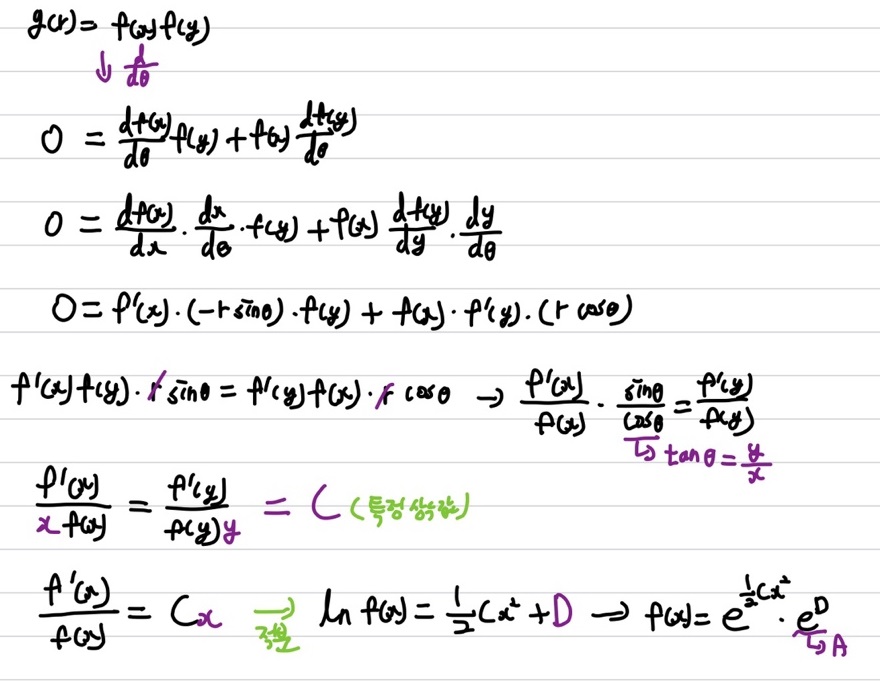 g(r) = f(x)f(y)
↓ d/dθ
0 = df(x)/dθ f(y) + f(x) df(y)/dθ
0 = df(x)/dx · dx/dθ · f(y) + f(x) df(y)/dy · dy/dθ
0 = f'(x)·(-r sinθ)·f(y) + f(x)·f'(y)·(r cosθ)
f'(x)f(y)·r sinθ = f'(y)f(x)·r cosθ → f'(x)/f(x) · sinθ/cosθ = f'(y)/f(y)
↳ tanθ = y/x
f'(x)/xf(x) = f'(y)/f(y)y = C (특정 상수값)
f'(x)/f(x) = Cx → 적분 ln f(x) = 1/2 Cx² + D → f(x) = e^(1/2 Cx²) · e^D
↳ A